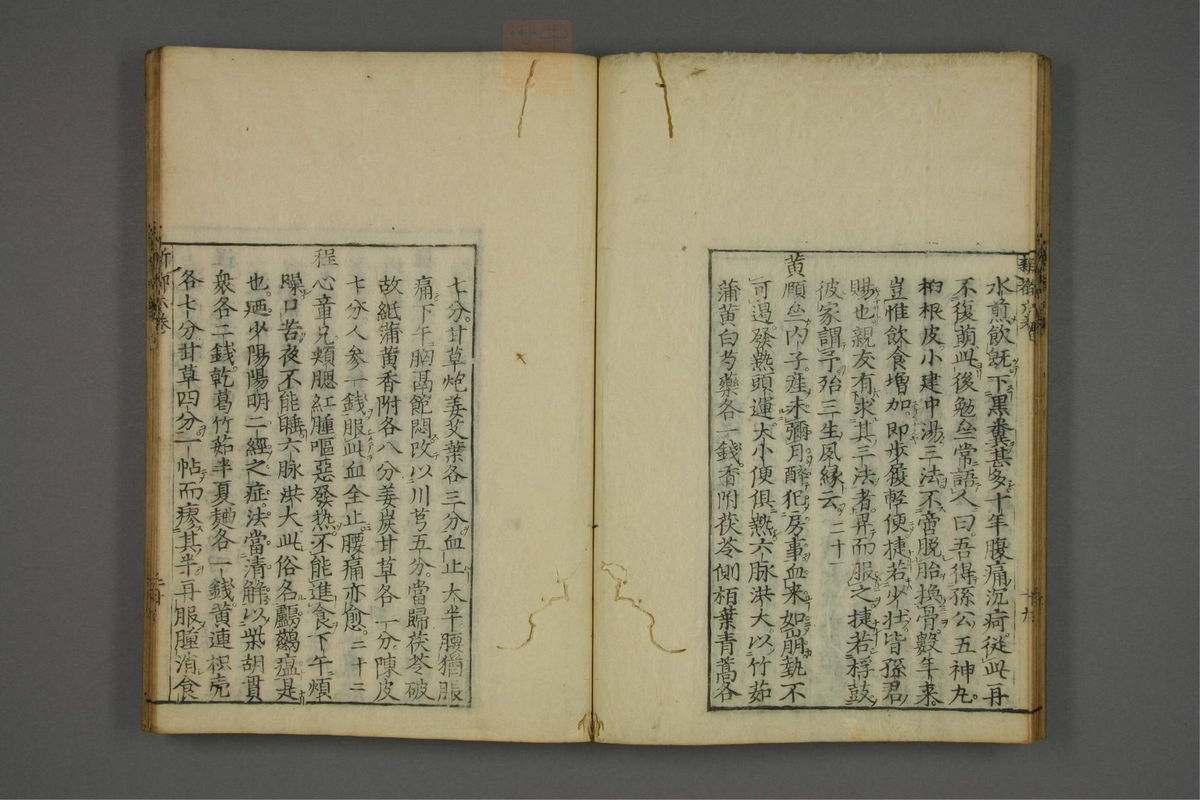 水煎飲既下黒糞甚多十年腹痛沉疴從此再
不復萌此後勉亝常語人曰吾得孫公五神丸
柏根皮小建中湯三法不啻脱胎換骨數年来
豈惟飲食增加即步履輕便捷若少壮皆孫君
賜也親友有求其三法者畀而服之捷若桴鼓
彼家謂予殆三生夙縁云 二十一
黄願亝内子產未彌月醉犯房事血来如崩勢不
可遏發熱頭運大小便俱熱六脉洪大以竹茹
蒲黄白芍藥各一錢香附茯苓側栢葉青蒿各
七分甘草炮姜艾葉各三分血止大半腰猶脹
痛下午胸鬲飽悶改以川芎五分當歸茯苓破
故紙蒲黄香附各八分姜炭甘草各一分陳皮
七分人參一錢服此血全止腰痛亦愈 二十二
程心章兄頰腮紅腫嘔惡發熱不能進食下午煩
曝口苦夜不能睡六脉洪大此俗名鸕鷀瘟是
也廼少陽陽明二經之症法當清解以柴胡貫
衆各二錢乾葛竹茹半夏麯各一錢黄連枳壳
各七分甘草四分一帖而瘳其半再服腫消食